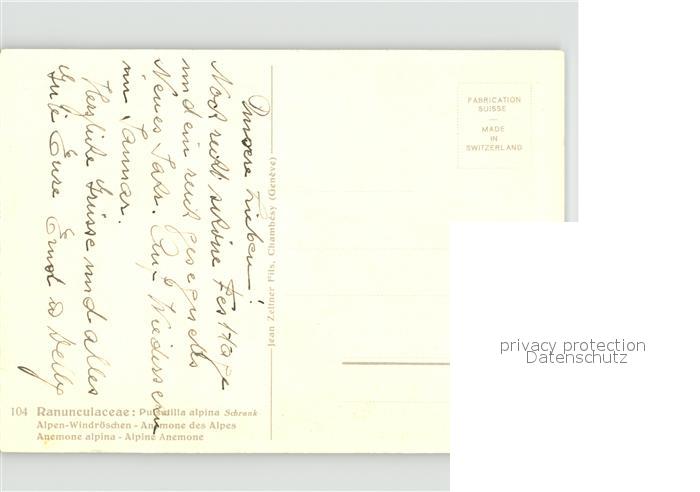 Unsere Lieben!
Noch recht schöne Festtage
und ein recht gesegnetes
Neues Jahr. Auf Wiedersehn
im Januar.
Herzliche Grüsse und alles
Gute Eure
Jean Zeltner Fils, Chambésy (Genève)
FABRICATION
SUISSE
—
MADE
IN
SWITZERLAND
privacy protection
Datenschutz
104 Ranunculaceae: Pulsatilla alpina Schrank
Alpen-Windröschen - Anemone des Alpes
Anemone alpina - Alpine Anemone